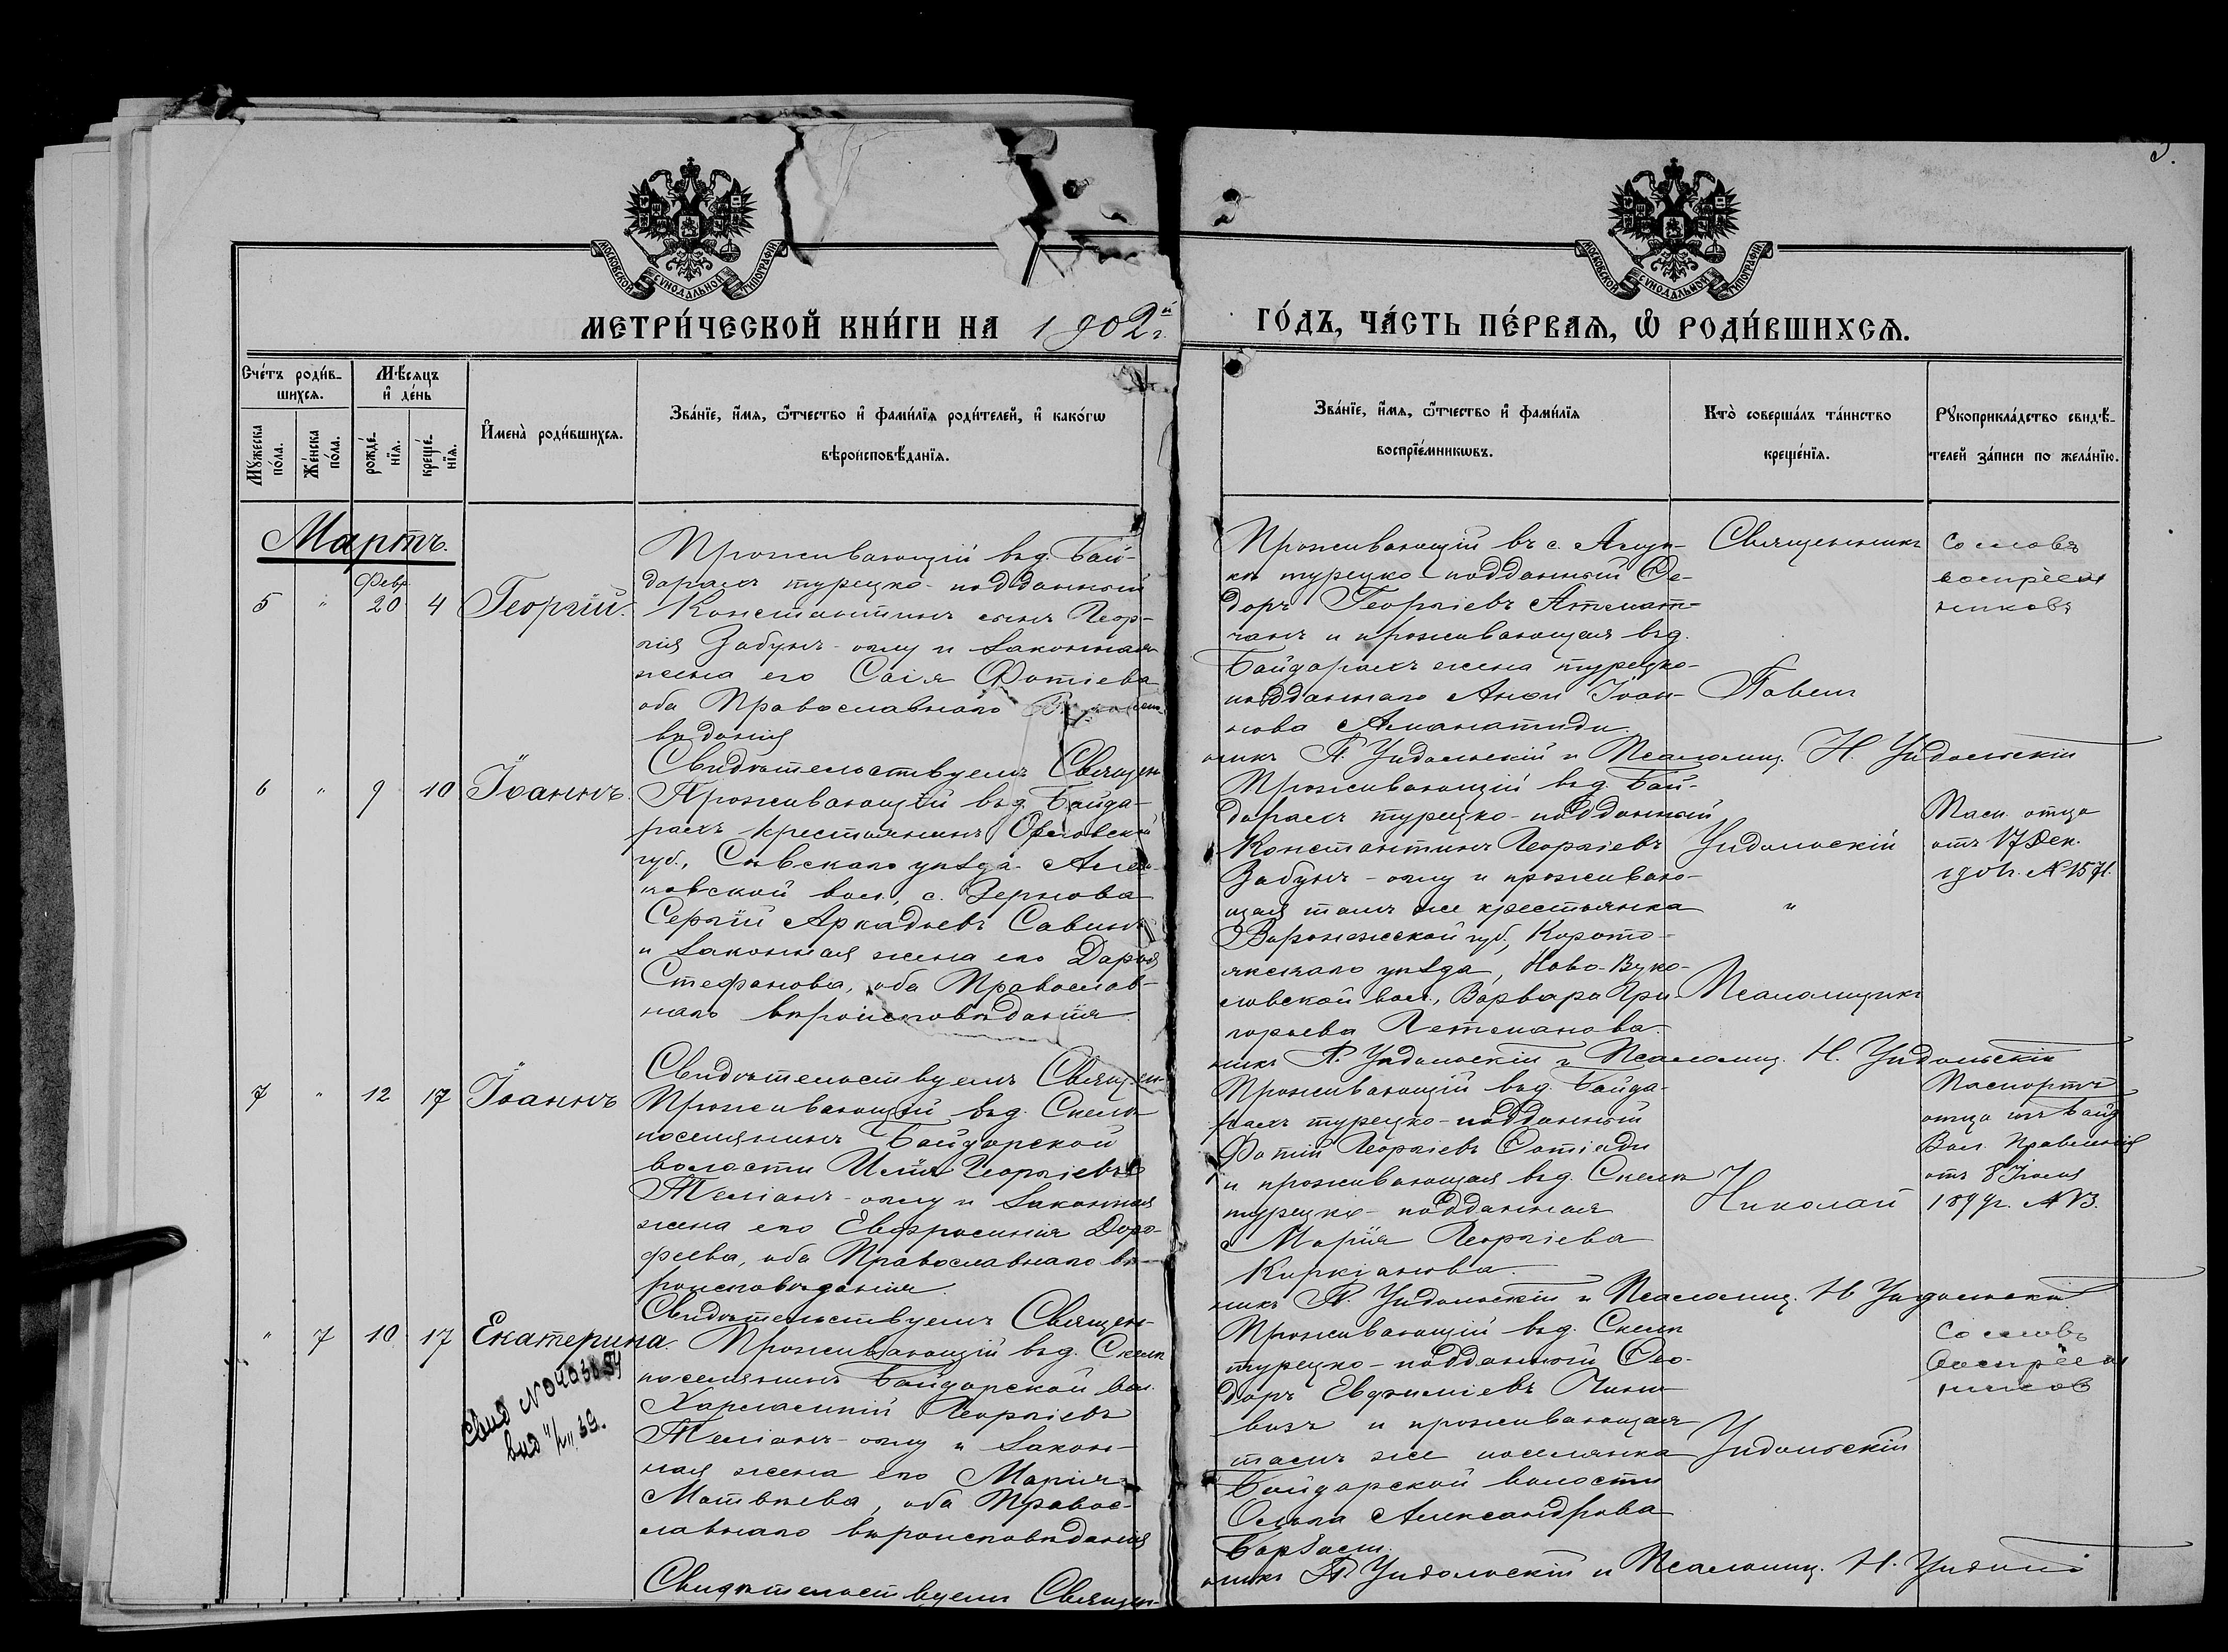 3.
МОСКОВСКОЙ СѴНОДАЛЬНОЙ ТИПОГРАФІИ
МОСКОВСКОЙ СѴНОДАЛЬНОЙ ТИПОГРАФІИ
МЕТРИ́ЧЕСКОЙ КНИ́ГИ НА 1902й г.
ГО́ДЪ, ЧА́СТЬ ПЕ́РВАЯ, Ѡ҆ РОДИ́ВШИХСЯ.
Сче́тъ роди́в-
шихся.
Мꙋ́жеска
по́ла.
Же́нска
по́ла.
Мѣ́сяцъ
и҆ де́нь
рожде́-
нїя.
креще́-
нїя.
И҆мена̀ роди́вшихся.
Зва́нїе, и҆́мя, ѻ҆́тчество и҆ фами́лїя роди́телей, и҆ како́гѡ
вѣроисповѣ́данїя.
Зва́нїе, и҆́мя, ѻ҆́тчество и҆ фами́лїя
воспрїе́мникѡвъ.
Кто̀ соверша́лъ та́инство
креще́нїя.
Рꙋкоприкла́дство свидѣ́-
телей за́писи по жела́нїю.
Мартъ.
5 " Февр. 20 4 Георгій.
Проживающій въ д. Бай-
дарахъ турецко-подданный
Константинъ сынъ Геор-
гія Забунъ-оглу и законная
жена его Софія Фотіева
оба Православнаго
вѣданія
Проживающій въ с.
турецко-подданный Ѳе-
доръ Георгіевъ
и проживающая въ д.
Байдарахъ жена турецко-
подданнаго Іоан-
нова Аманатиди.
Священникъ
Павелъ
Со словъ
воспріем
никовъ
Свидѣтельствуемъ Священ
никъ П. Ундольскій и Псаломщ. Н. Ундольскій
6 " 9 10 Іоаннъ.
Проживающій въ д. Байда-
рахъ крестьянинъ Орловской
губ., Сѣвскаго уѣзда
вол., с. Зернова
Сергій Аркадьевъ Савинъ
и законная жена его Дарья
Стефанова, оба Православ-
наго вѣроисповѣданія
Проживающій въ д. Бай-
дарахъ турецко-подданный
Константинъ Георгіевъ
Забунъ-оглу и прожива-
ющая тамъ же крестьянка
Воронежской губ., Корото-
якскаго уѣзда, Ново-
вол., Варвара Гри-
горьева Гетманова.
Ундольскій
"
Псаломщикъ
Пасп. отца
отъ 17 Дек.
1901г. № 1571.
Свидѣтельствуемъ Священ-
никъ П. Ундольскій и Псаломщ. Н. Ундольскій
7 " 12 17 Іоаннъ
Проживающій въ д. Скеля
поселянинъ Байдарской
волости Илія Георгіевъ
Теміанъ-оглу и законная
жена его Евфросинія Доро-
феева, оба Православнаго вѣ-
роисповѣданія.
Проживающій въ д. Байда-
рахъ турецко-подданный
Фотій Георгіевъ
и проживающая въ д. Скеля
турецко-подданная
Марія Георгіева
Киркіанова.
Николай
Паспортъ
отца изъ Байд
Вол. Правленія
отъ 8 Іюля
Свидѣтельствуемъ Священ-
никъ П. Ундольскій и Псаломщ. Н Ундольскій
" 7 10 17 Екатерина.
Проживающій въ д. Скеля
поселянинъ Байдарской вол.
Харлампій Георгіевъ
Теміанъ-оглу и закон-
ная жена его Марія
Матвѣева, оба Правос-
лавнаго вѣроисповѣданія
Проживающій въ д. Скеля
турецко-подданный Ѳео-
доръ Евфиміевъ
и проживающая
тамъ же поселянка
Байдарской волости
Ольга Александрова
Ундольскій
Со словъ
воспріем
никовъ
Свидѣтельствуемъ Священ-
никъ П. Ундольскій и Псаломщ. Н.